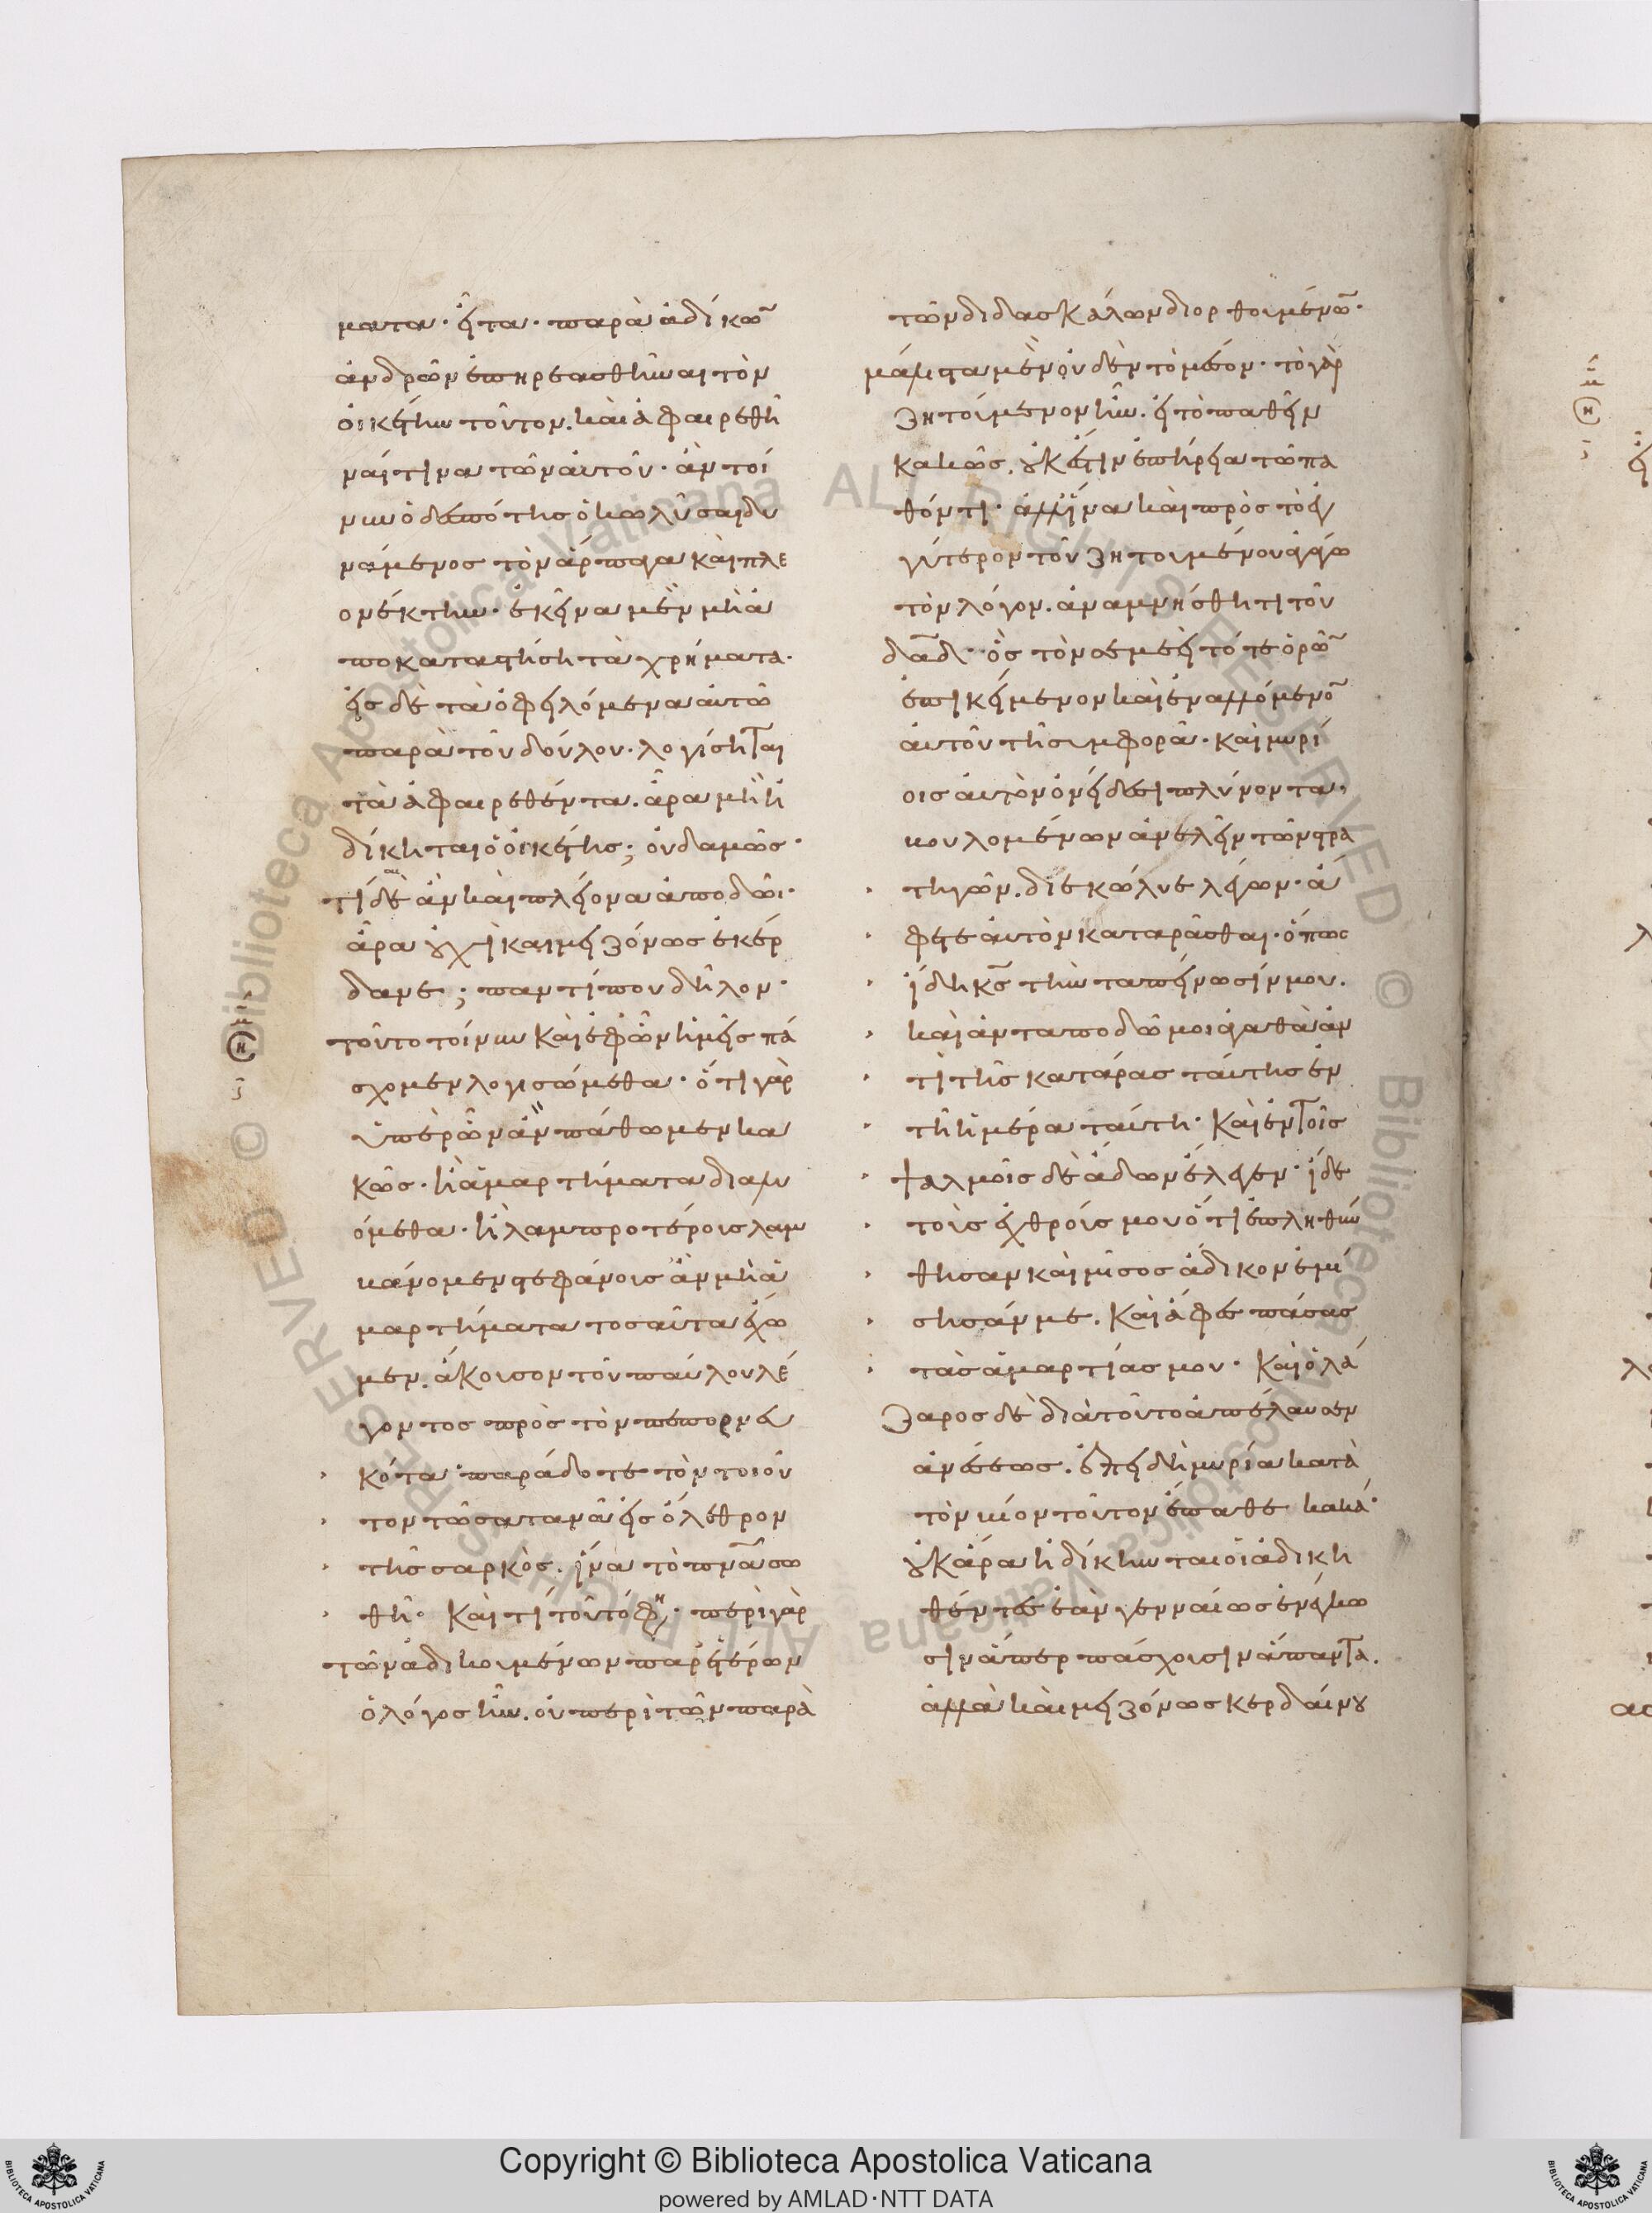 ματα· εἶτα· παρὰ ἀδίκων
ἀνδρῶν ἐπηρεασθῆναι τὸν
οἰκέτην τοῦτον. καὶ ἀφαιρεθῆ
ναί τινα τῶν αὐτοῦ· ἂν τοί
νυν ὁ δεσπότης ὁ κωλῦσαι δυ
νάμενος τὸν ἅρπαγα καὶ πλε
ονέκτην· ἐκεῖνα μὲν μὴ ἀ
ποκαταστήσῃ τὰ χρήματα·
εἰς δὲ τὰ ὀφειλόμενα αὐτῶ
παρὰ τοῦ δούλου· λογίσηται
τὰ ἀφαιρεθέντα. ἆρα μὴ ἠ
δίκηται ὁ οἰκέτης; οὐδαμῶς·
τί δαὶ ἂν καὶ πλείονα ἀποδῶι·
ἆρα οὐχὶ καὶ μειζόνως ἐκέρ
δανε; παντί που δῆλον·
τοῦτο τοίνυν καὶ ἐφ' ὧν ἡμεῖς πά
σχομεν λογισώμεθα· ὅτι γὰρ
ὑπὲρ ὧν ἂν πάθωμεν κα
κῶς· ἢ ἁμαρτήματα διαλυ
όμεθα· ἢ λαμπροτέροις λαμ
βάνομεν στεφάνοις ἂν μὴ ἁ
μαρτήματα τοσαῦτα ἔχω
μεν. ἄκουσον τοῦ παύλου λέ
γοντος πρὸς τὸν πεπορνευ
κότα· παράδοτε τὸν τοιοῦ
τον τῶ σατανᾶ εἰς ὄλεθρον
τῆς σαρκὸς. ἵνα τὸ πνᾶ σω
θῆ· καὶ τί τοῦτό φη· περὶ γὰρ
τῶν ἀδικουμένων παρ' ἑτέρων
ὁ λόγος ἦν. οὐ περὶ τῶν παρὰ
τῶν διδασκάλων διορθουμένων·
μάλιστα μὲν οὐδὲν τὸ μέσον· τὸ γὰρ
ζητούμενον ἦν. εἰ τὸ παθεῖν
κακῶς. οὐκ ἔστιν ἐπήρεια τῶ πα
θόντι· ἀλλ' ἵνα καὶ πρὸς τὸ ἐγ
γύτερον τοῦ ζητουμένου ἀγάγω
τὸν λόγον. ἀναμνήσθητι τοῦ
δᾶδ· ὃς τὸν σεμεεὶ τότε ὁρῶν
ἐπικείμενον καὶ ἐναλλόμενον
αὐτοῦ τῆ συμφορᾶ· καὶ μυρί
οις αὐτὸν ὀνείδεσι πλύνοντα·
βουλομένων ἀνελεῖν τῶν στρα
τηγῶν. διεκώλυε λέγων· ἄ
φετε αὐτὸν καταρᾶσθαι· ὅπως
ἴδη κς τὴν ταπείνωσίν μου.
καὶ ἀνταποδῶ μοι ἀγαθὰ ἀν
τὶ τῆς κατάρας ταύτης ἐν
τῆ ἡμέρα ταύτη· καὶ ἐν τοῖς
ψαλμοῖς δὲ ἄδων ἔλεγεν· ἴδε
τοὺς ἐχθρούς μου ὅτι ἐπληθύν
θησαν καὶ μῖσος ἄδικον ἐμί
σησάν με. καὶ ἄφες πάσας
τὰς ἁμαρτίας μου· καὶ ὁ λά
ζαρος δὲ διὰ τοῦτο ἀπέλαυσεν
ἀνέσεως. ἐπειδὴ μυρία κατὰ
τὸν βίον τοῦτον ἔπαθε κακά·
οὐκ ἄρα ἠδίκηνται οἱ ἀδικη
θέντες ἐὰν γενναίως ἐνέγκω
σιν ἅπερ πάσχουσιν ἅπαντα.
ἀλλὰ καὶ μειζόνως κερδαίνου